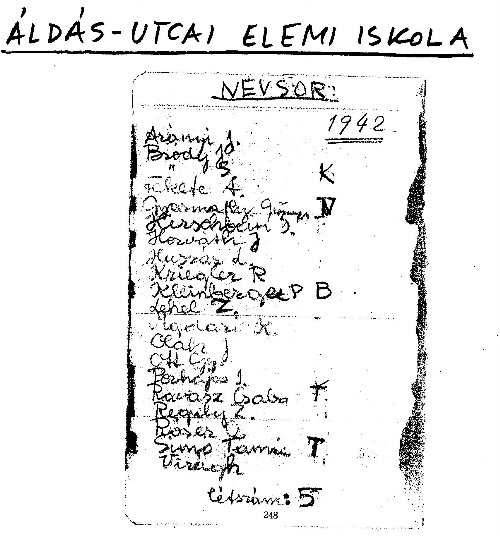 ÁLDÁS-UTCAI ELEMI ISKOLA
NÉVSOR:
1942
Arányi J.
Bródy J.
" S. K
Fekete Á.
Gyarmathy György N
Hirschbein J.
Horváth J
Huszár L.
Kriegler R
Kleinberger P B
Lehel Z.
K.
Oláh J
Ott Gy.
J.
Ravasz Csaba T
Regily Z.
Roser
Simó Tamás T
Virágh
létszám: 5
248